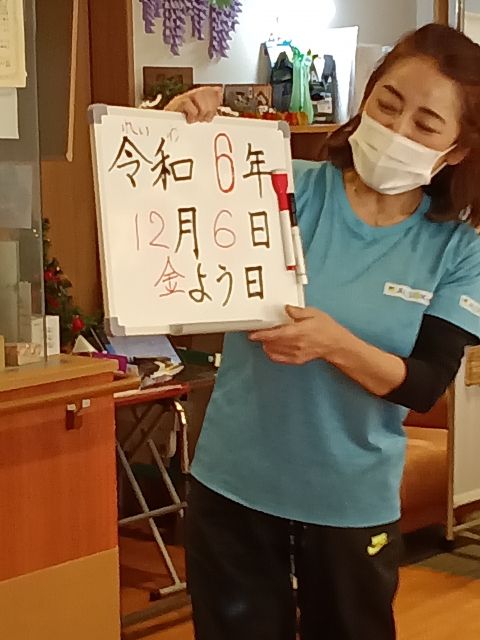 れいわ
令和 6年
12月6日
金よう日